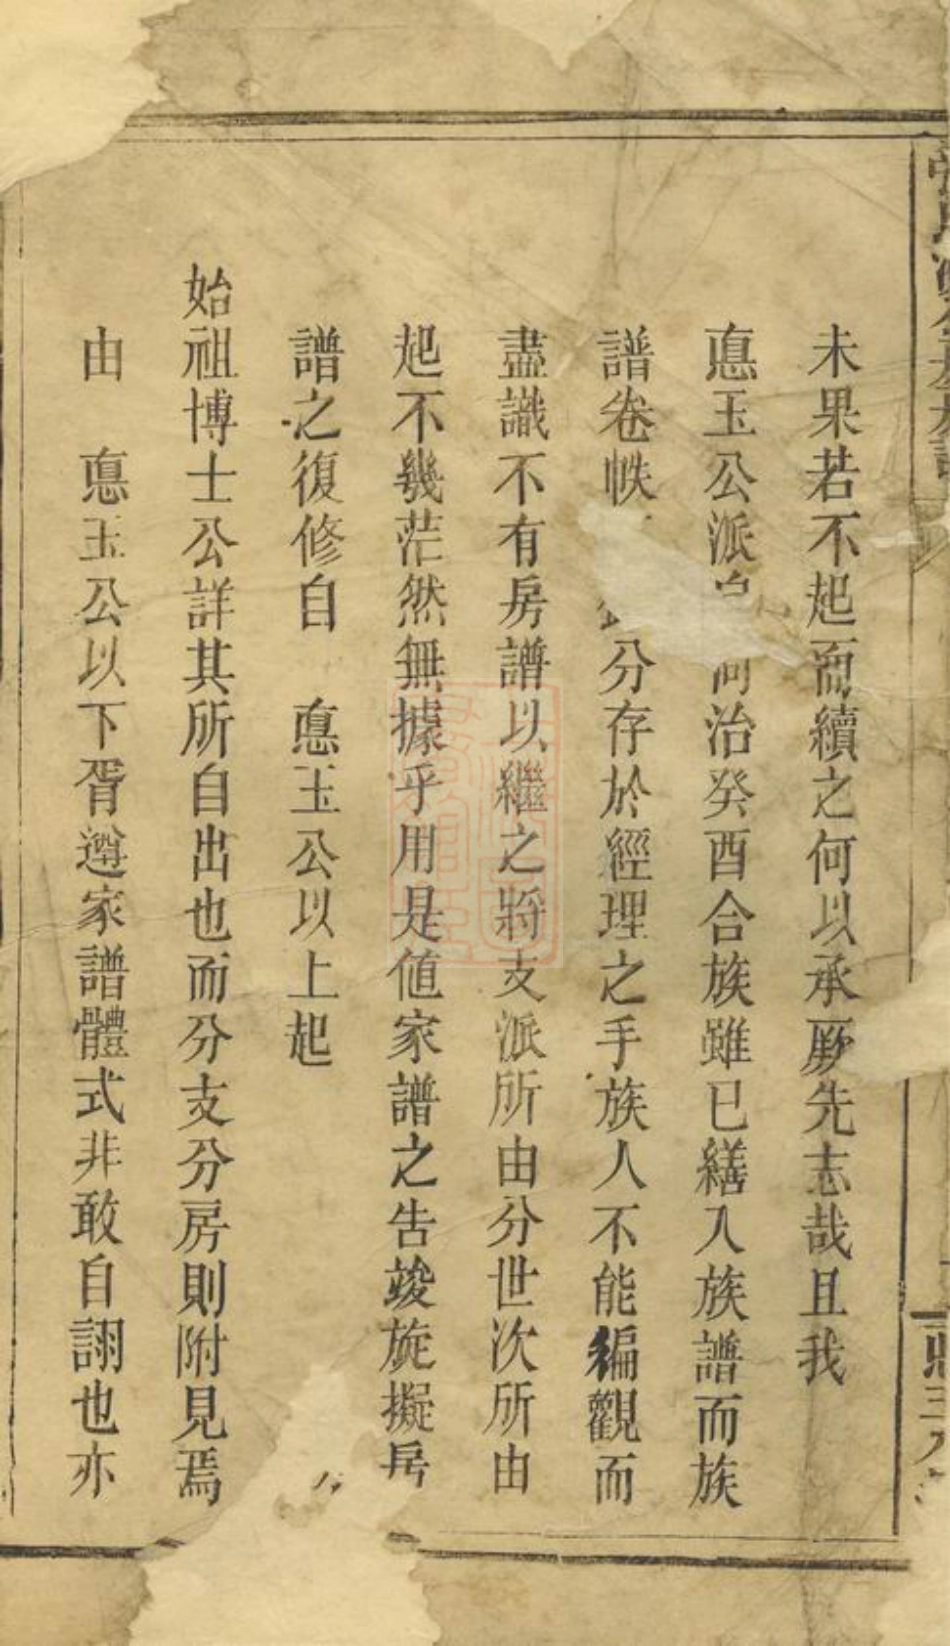 未果若不起而續之何以承厥先志哉且我
悳玉公派自同治癸酉合族雖已繕入族譜而族
譜卷帙分存於經理之手族人不能徧觀而
盡識不有房譜以繼之將支派所由分世次所由
起不幾茫然無據乎用是値家譜之告竣旋擬房
譜之復修自 悳玉公以上起
始祖博士公詳其所自出也而分支分房則附見焉
由 悳玉公以下胥遵家譜體式非敢自詡也亦